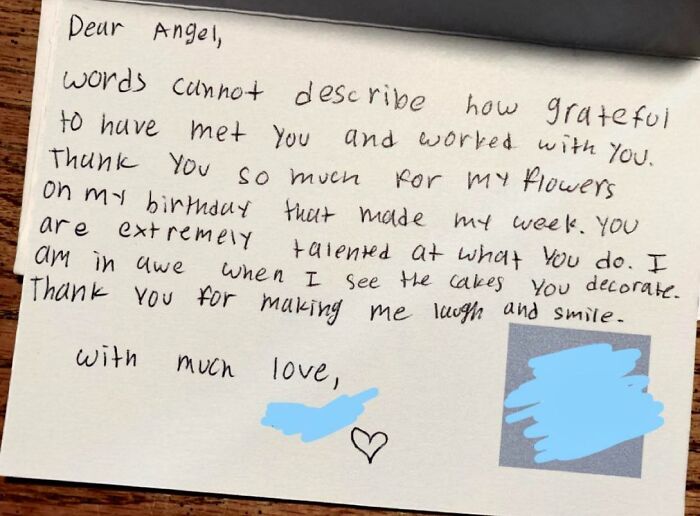 Dear Angel,
words cannot describe how grateful
to have met you and worked with you.
Thank you so much for my flowers
on my birthday that made my week. you
are extremely talented at what you do. I
am in awe when I see the cakes you decorate.
Thank you for making me laugh and smile.
with much love,